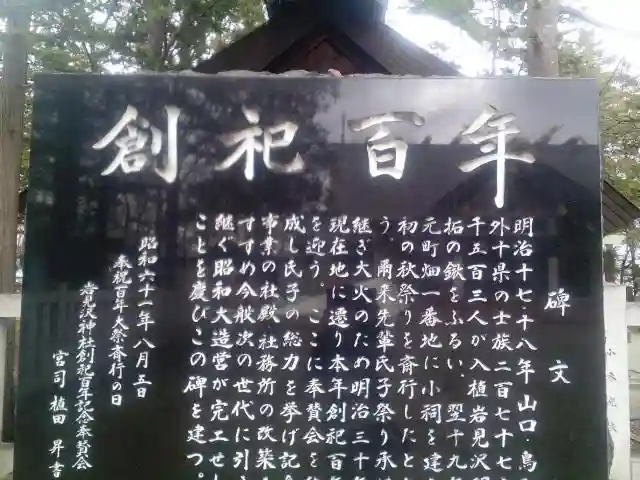 創祀百年
碑文
明治十七・十八年山口・鳥
外十県の士族二百七十七
千五百三人が入植岩見沢
拓の鍬をふるい、翌十九年
元町畑一番地に小祠を建
初の秋祭りを斎行したと
う。爾来先輩氏子祭り承
継ぎ大火のため明治三十
現在地に遷り本年創祀百
を迎う。ここに奉賛会を
成し氏子の総力を挙げ記
事業の社殿・社務所の改築
すすめ今般次の世代に引
継ぐ昭和大造営が完工せし
ことを慶びこの碑を建つ。
昭和六十一年八月五日
奉祝百年大祭斎行の日
岩見沢神社創祀百年記念奉賛会
宮司 植田 昇書